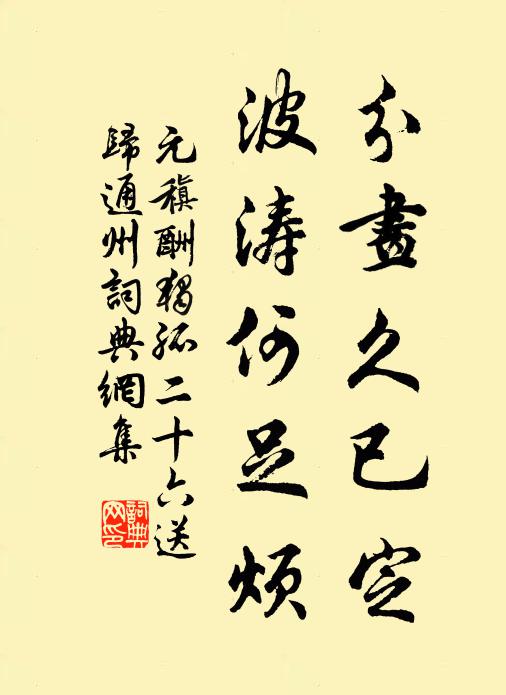 分畫久已定
波涛何足烦
元稹酬獨孤二十六送
歸通州詞典網集
詞典网印